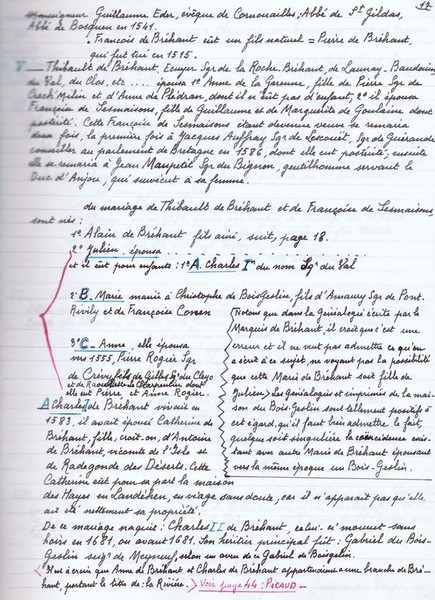 17
Monseigneur Guillaume Eder, évêque de Cornouailles, Abbé de St Gildas,
Abbé de Bosquen en 1541.
François de Bréhant eût un fils naturel = Pierre de Bréhant,
qui fut tué en 1515.
V — Thibault de Bréhant, Ecuyer Sgr de la Roche-Bréhant, de Launay-Baudouin,
du Val, du Clos, etc ... épousa 1° Anne de la Garenne, fille de Pierre Sgr de
Crech'Milin et d'Anne de Plédran, dont il n'eût pas d'enfant; 2° il épousa
Françoise de Sesmaisons, fille de Guillaume et de Marguerite de Goulaine dont
postérité. Cette Françoise de Sesmaisons étant devenue veuve se remaria
deux fois, la première fois à Jacques Auffray Sgr de Lescouët, Sgr de Guérande
conseiller au parlement de Bretagne en 1586, dont elle eut postérité; ensuite
elle se remaria à Jean Maupetit Sgr du Bignon, gentilhomme servant le
Duc d'Anjou, qui survécut à sa femme.
du mariage de Thibault de Bréhant et de Françoise de Sesmaisons,
sont nés :
1° Alain de Bréhant fils ainé, suit, page 18.
2° Julien, épousa . . . . . . . . . . . . . . . . . . .
et il eût pour enfants : 1° A. Charles Ier du nom Sgr du Val
2° B. Marie mariée à Christophe de BoisGeslin, fils d'Amaury Sgr de Pont-
Rivily et de Françoise Conen
3° C. Anne, elle épousa
vers 1555, Pierre Rogier Sgr
de Crévy fils de Gilles Sgr du Clayo
et de Raoullette Le Charpentier dont
elle eut Pierre, et Anne Rogier.
(Notons que dans la Généalogie écrite par le
Marquis de Bréhant, il croit que c'est une
erreur et il ne veut pas admettre ce qu'on
a écrit à ce sujet, ne voyant pas la possibilité
que cette Marie de Bréhant soit fille de
Julien) Les Généalogies et imprimés de la mai-
son du Bois-Geslin sont tellement positifs à
cet égard, qu'il faut bien admettre le fait,
quelque soit singulière la coïncidence exis-
tant avec autre Marie de Bréhant épousant
vers la même époque un Bois-Geslin.
A Charles I de Bréhant vivait en
1583, il avait épousé Catherine de
Bréhant, fille, croit-on, d'Antoine
de Bréhant, vicomte de l'Isle et
de Radegonde des Déserts. Cette
Catherine eût pour sa part la maison
des Hayes en Landéhen, en viage sans doute, car il n'apparait pas qu'elle
ait été nettement sa propriété.
De ce mariage naquit : Charles II de Bréhant, celui-ci mourut sans
hoirs en 1681, ou avant 1681. Son héritier principal fut : Gabriel du Bois-
Geslin seigr de Meyneuf, selon un aveu de ce Gabriel de Boisgelin.
< Il est à croire que Anne de Bréhant et Charles de Bréhant appartiendrait à une branche de Bré-
hant, portant le titre de : la Rivière. > Voir page 44 : PICAUD —